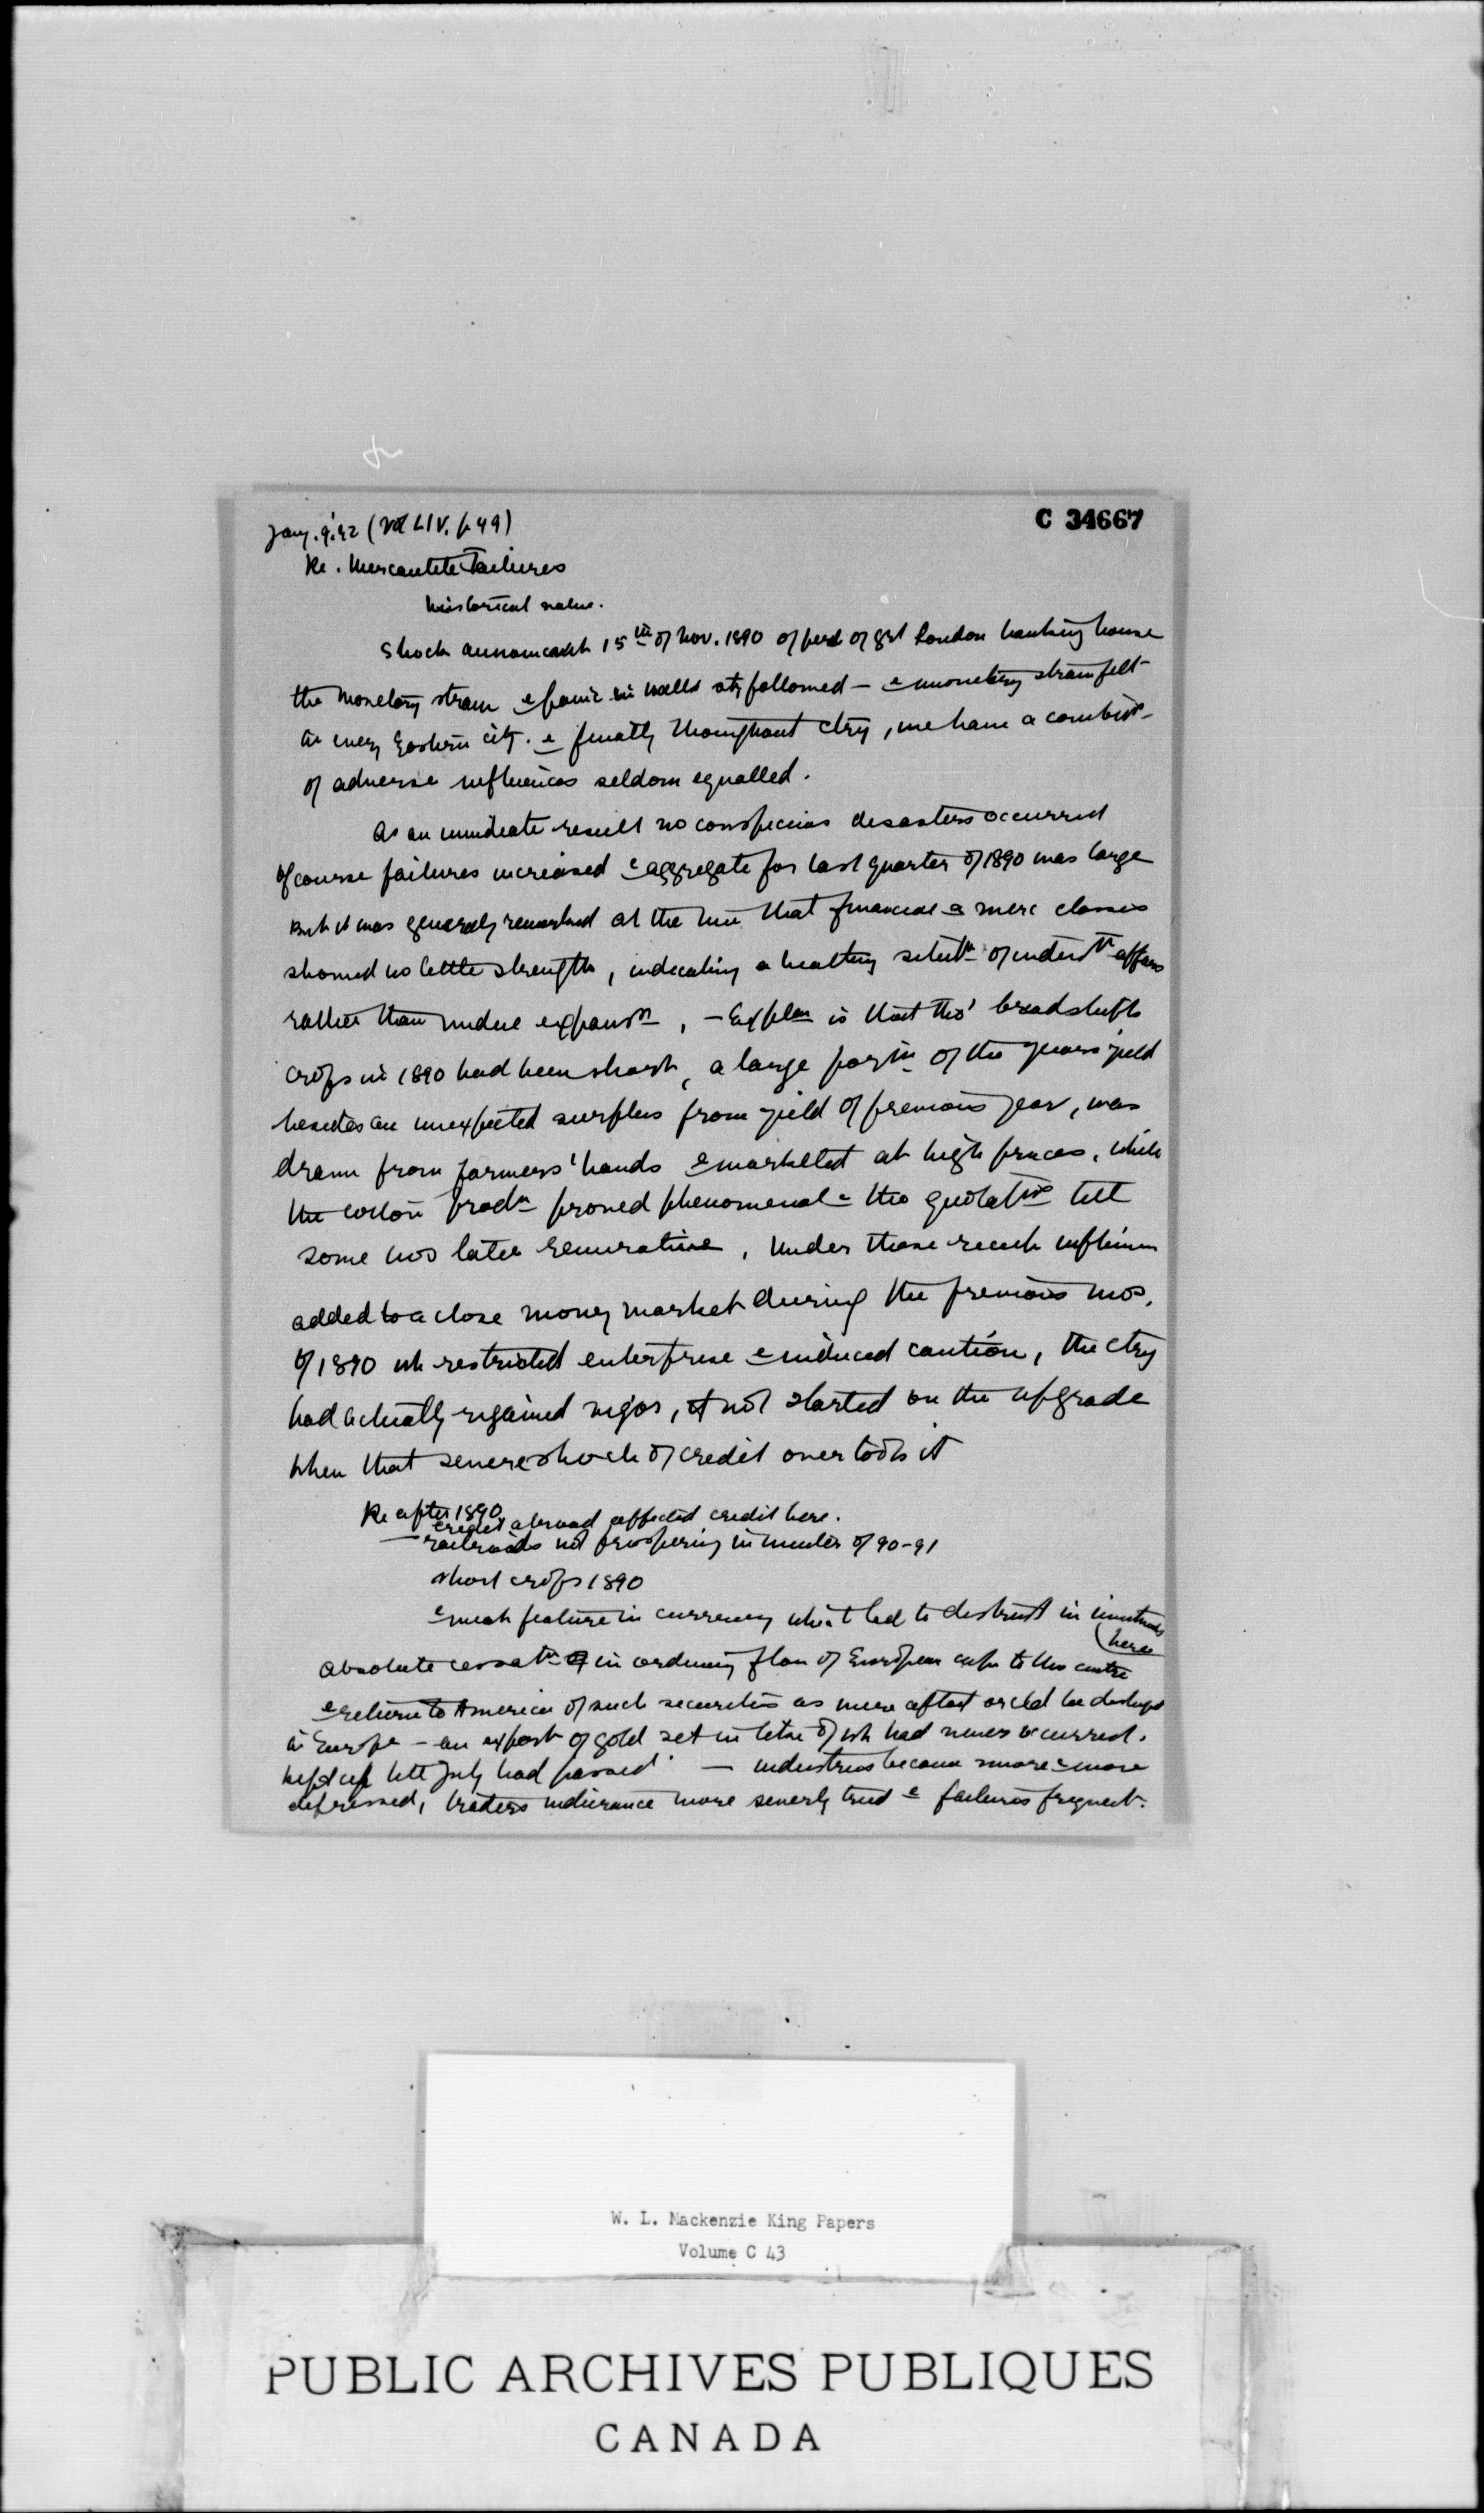 Jany. 9. '92 (Vol LIV. p 49)
C 34667
Re. Mercantile Failures
historical value.
Shock announcemt 15th of Nov. 1890 of of grt London banking house
the monetary strain & panic in Wall st followed – & monetary strain felt
in every Eastern city. & finally throughout ctry, we have a combin
of adverse influences seldom equalled.
As an immediate result no conspicuous disasters occurred
of course failures increased & aggregate for last quarter of 1890 was large
But it was generally remarked at the time that financial & merc classes
showed no little strength, indicating a healthy of affairs
rather than undue expansn, – Explan is that tho' breadstuffs
crops in 1890 had been short, a large portn of the years yield
besides an unexpected surplus from yield of previous year, was
drawn from farmers' hands & marketed at high prices, while
the cotton prodn proved phenomenal & the quotatns till
some mos later remunrative. Under these recent influences
added to a close money market during the previous mos.
of 1890 wh restricted enterprise & induced caution, the ctry
had actually regained vigor, if not started on the upgrade
when that severe shock of credit overtook it
Re after 1890
credit abroad affected credit here.
– railroads not prospering in winter of 90-91
short crops 1890
& weak feature in currency whi. led to distrust in investmts
(here
absolute cessatn in ordinary flow of European cap to this centre
& return to America of such securities as were afloat or cld be
in Europe – an export of gold set in of wh had never occurred.
kept up till July had passed – industries became more & more
depressed, traders indurance more severly tried & failures frequent.
W. L. Mackenzie King Papers
Volume C 43
PUBLIC ARCHIVES PUBLIQUES
CANADA